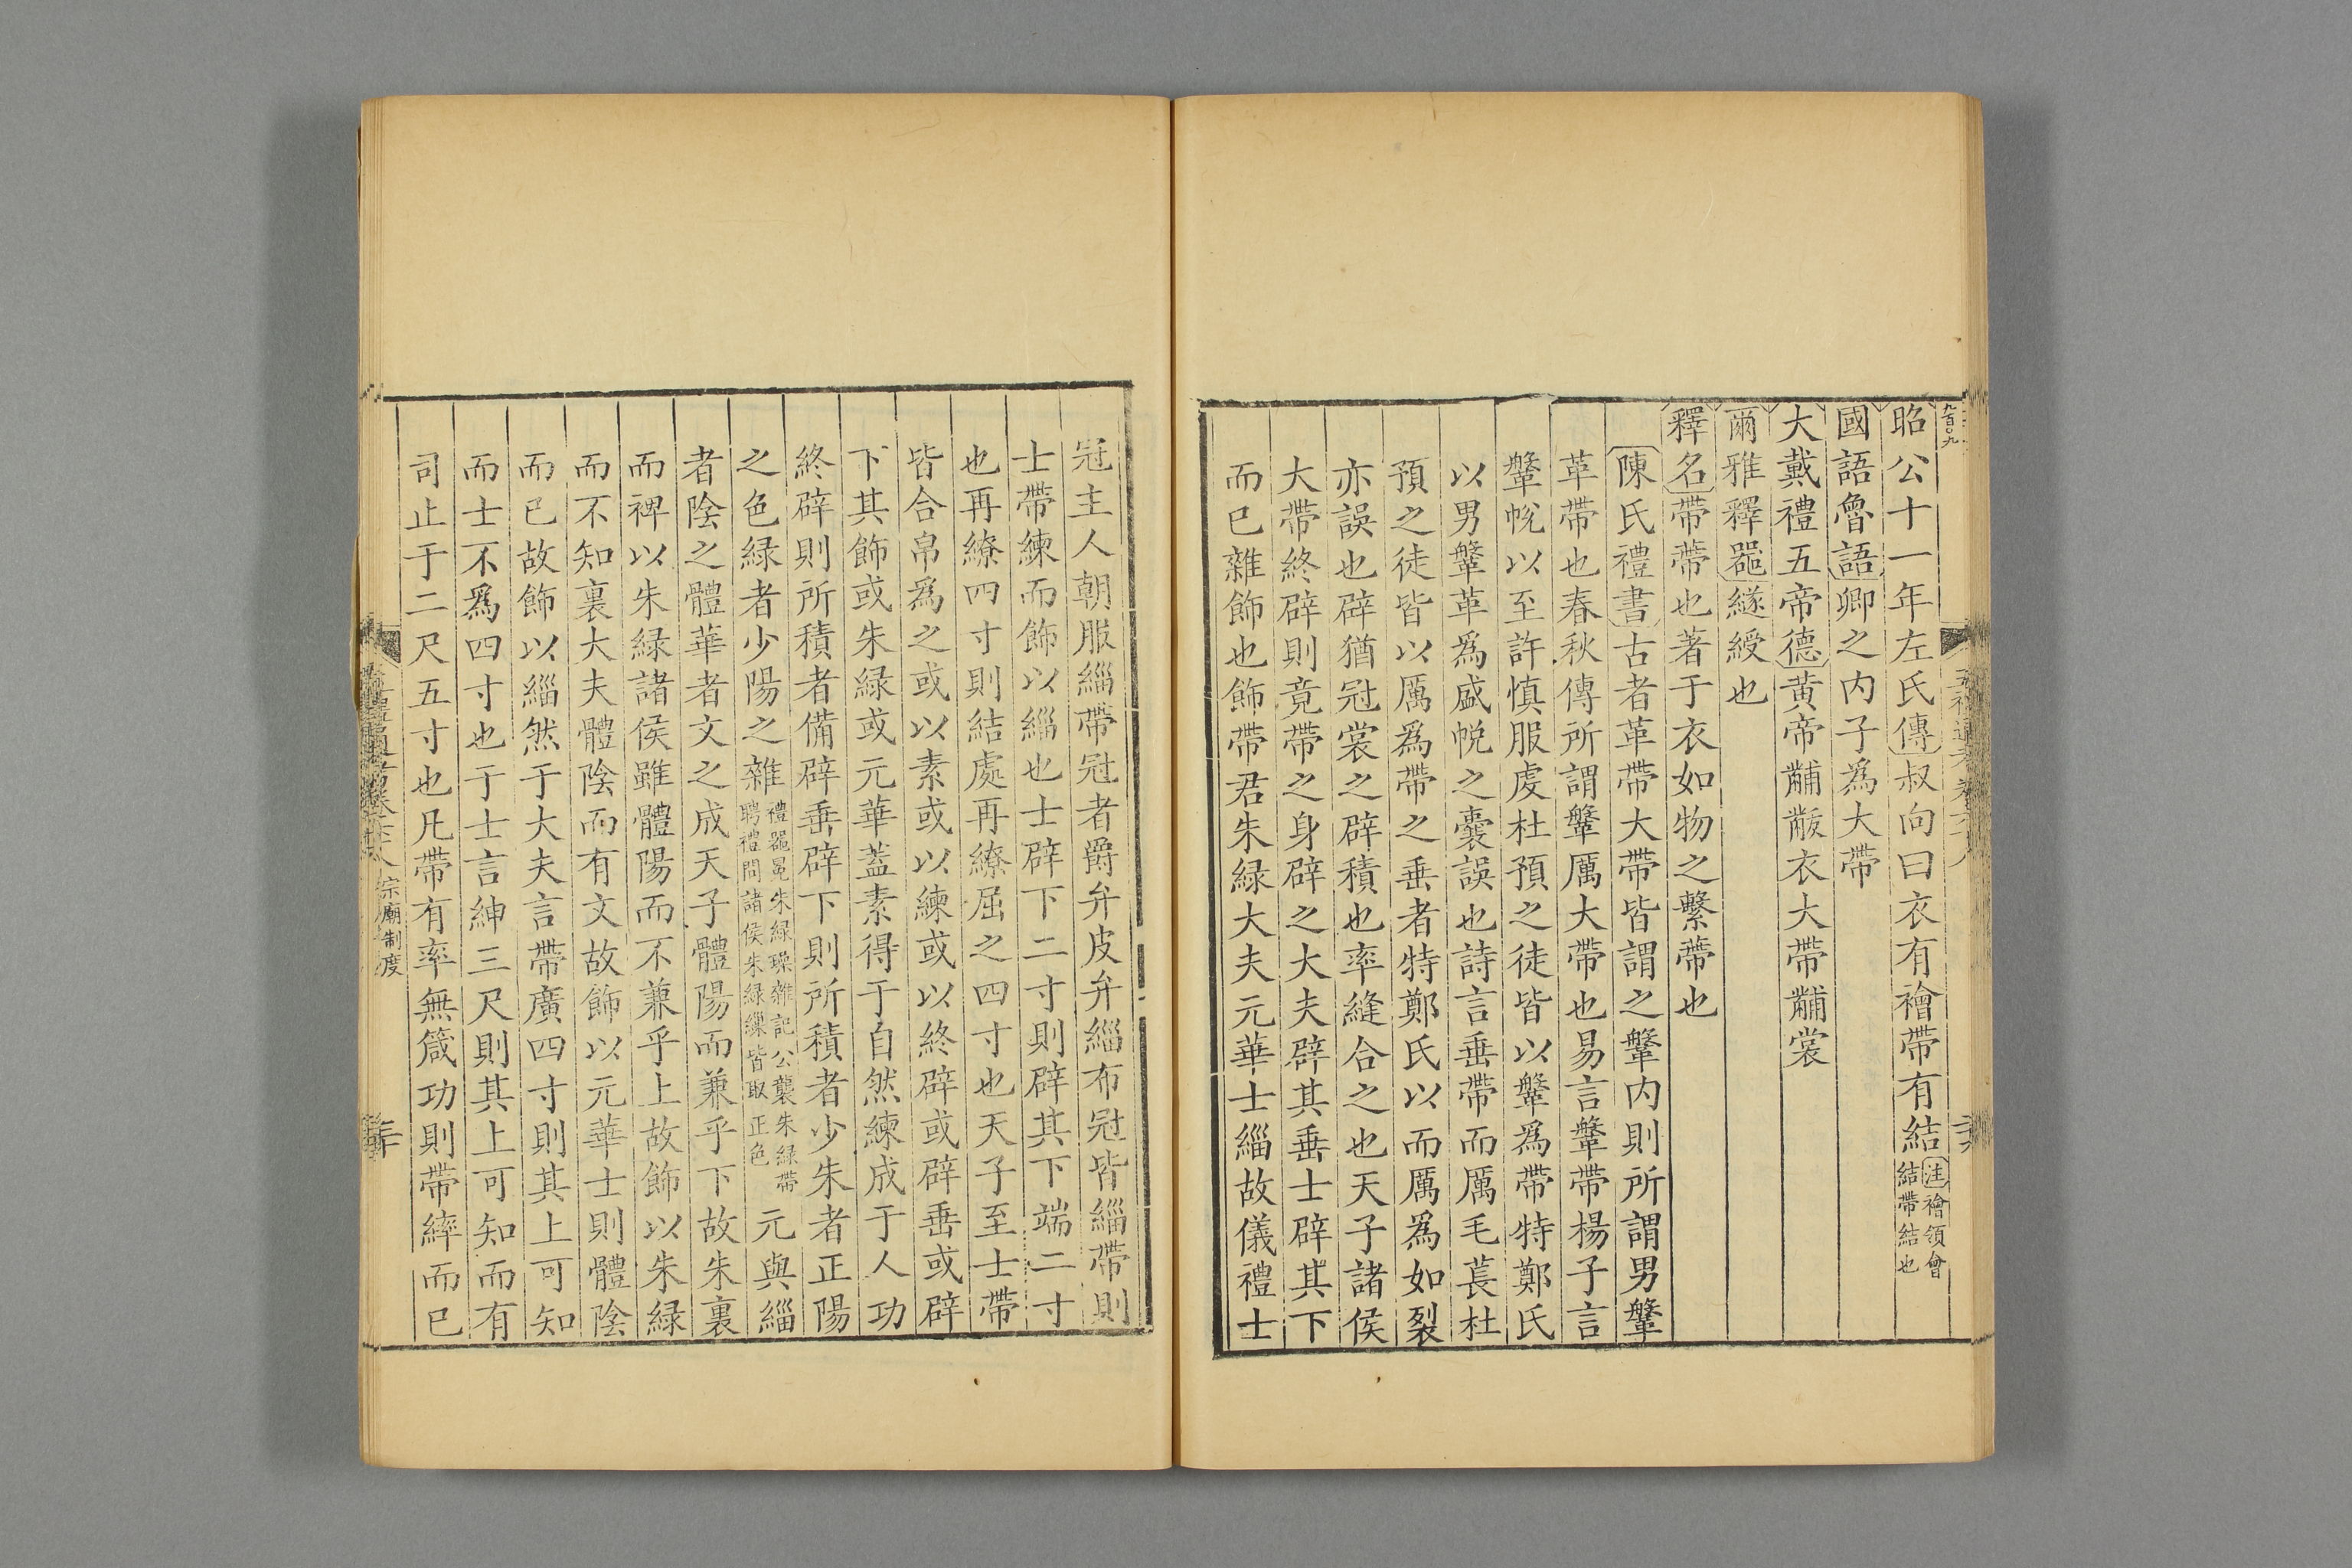 昭公十一年左氏傳叔向曰衣有襘帶有結注襘領會結帶結也
國語魯語卿之内子為大帶
大戴禮五帝德黄帝黼黻衣大帶黼裳
爾雅釋器繸綬也
釋名帶蔕也著于衣如物之繫蔕也
陳氏禮書古者革帶大帶皆謂之鞶内則所謂男鞶
革帶也春秋傳所謂鞶厲大帶也易言鞶帶楊子言
鞶帨以至許慎服虔杜預之徒皆以鞶為帶特鄭氏
以男鞶革為盛帨之囊誤也詩言垂帶而厲毛萇杜
預之徒皆以厲為帶之垂者特鄭氏以而厲為如裂
亦誤也辟猶冠裳之辟積也率縫合之也天子諸侯
大帶終辟則竟帶之身辟之大夫辟其垂士辟其下
而已雜飾也飾帶君朱緑大夫元華士緇故儀禮士
冠主人朝服緇帶冠者爵弁皮弁緇布冠皆緇帶則
士帶練而飾以緇也士辟下二寸則辟其下端二寸
也再繚四寸則結處再繚屈之四寸也天子至士帶
皆合帛為之或以素或以練或以終辟或辟垂或辟
下其飾或朱緑或元華蓋素得于自然練成于人功
終辟則所積者備辟垂辟下則所積者少朱者正陽
之色緑者少陽之雜禮器冕朱緑璪雜記公襲朱緑帶聘禮問諸侯朱緑繅皆取正色元與緇
者陰之體華者文之成天子體陽而兼乎下故朱裏
而裨以朱緑諸侯雖體陽而不兼乎上故飾以朱緑
而不知裏大夫體陰而有文故飾以元華士則體陰
而已故飾以緇然于大夫言帶廣四寸則其上可知
而士不為四寸也于士言紳三尺則其上可知而有
司止于二尺五寸也凡帶有率無箴功則帶繂而已
宗廟制度